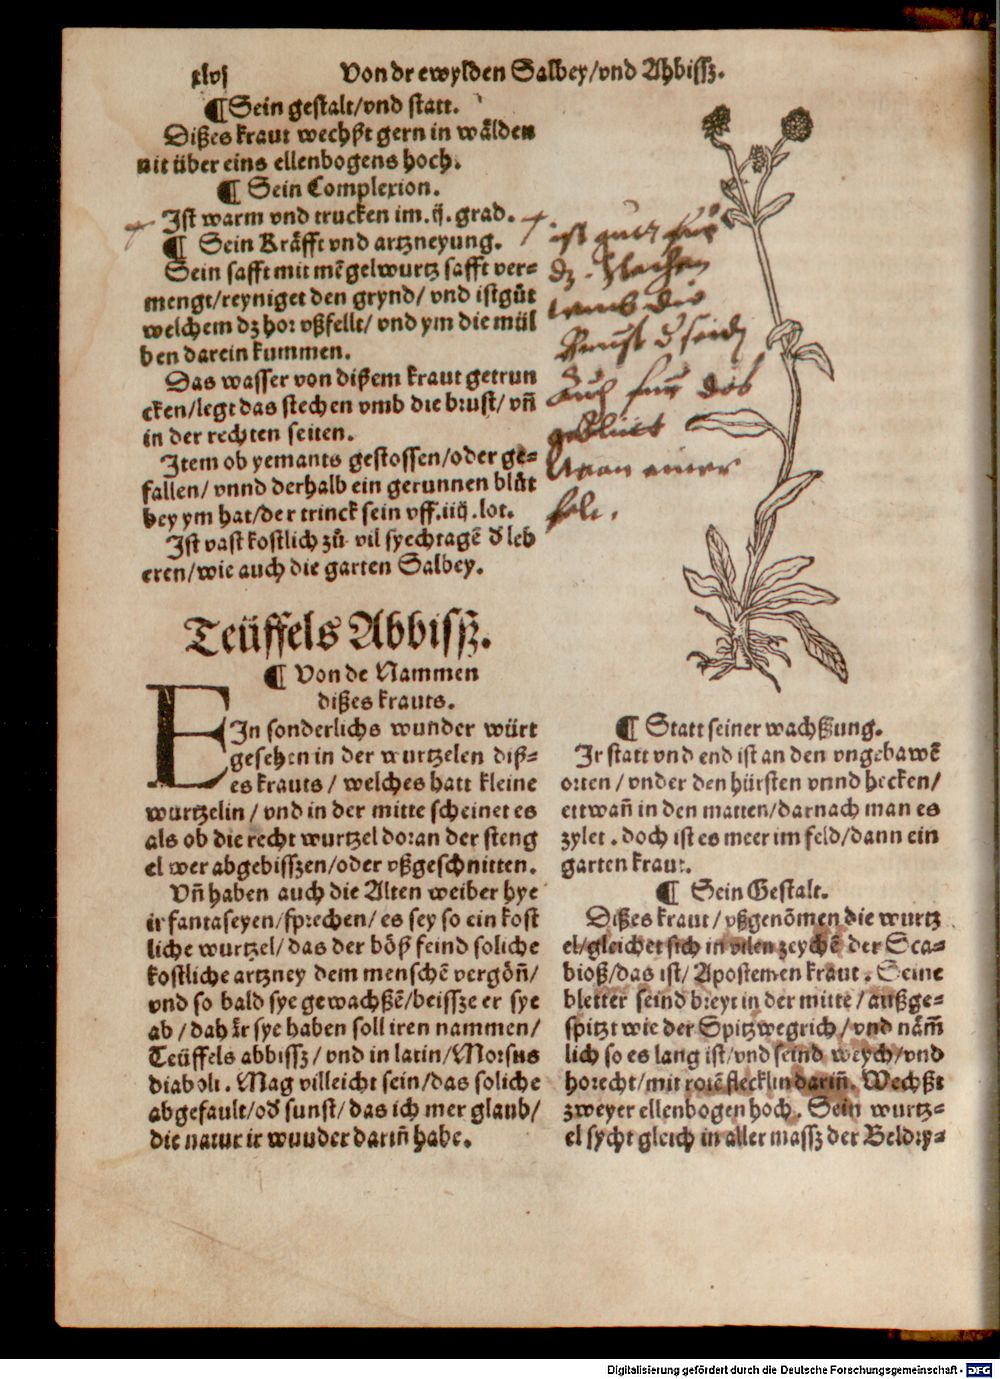 xlvj Von dr ewylden Salbey/vnd Ahbissz.
¶ Sein gestalt/vnd statt.
Dißes kraut wechßt gern in wälden
nit über eins ellenbogens hoch.
¶ Sein Complexion.
Ist warm vnd trucken im .ij. grad.
¶ Sein Kräfft vnd artzneyung.
Sein safft mit mēgelwurtz safft ver⸗
mengt/reyniget den grynd/ vnd ist gůt
welchem dz hor vßfellt/ vnd ym die mül
ben darein kummen.
Das wasser von dißem kraut getrun
cken/legt das stechen vmb die brust/ vñ
in der rechten seiten.
Item ob yemants gestossen/oder ge⸗
fallen/ vnnd derhalb ein gerunnen blůt
bey ym hat/der trinck sein vff .iiij .lot.
Ist vast kostlich zů vil syechtagē d' leb
eren/wie auch die garten Salbey.
ist gutt für
dz
die
Auch für das
geblüet
einer
Teüffels Abbissz.
¶ Von de Nammen
dißes krauts.
EIn sonderlichs wunder würt
gesehen in der wurtzelen diß⸗
es krauts / welches hatt kleine
wurtzelin / vnd in der mitte scheinet es
als ob die recht wurtzel doran der steng
el wer abgebisszen/oder vßgeschnitten.
Vñ haben auch die Alten weiber hye
ir fantaseyen/sprechen/ es sey so ein kost
liche wurtzel/ das der böß feind soliche
kostliche artzney dem menschē vergöñ/
vnd so bald sye gewachßē/beissze er sye
ab / dahär sye haben soll iren nammen/
Teüffels abbissz / vnd in latin/Morsus
diaboli . Mag villeicht sein/das soliche
abgefault/od' sunst/ das ich mer glaub/
die natur ir wunder dariñ habe.
¶ Statt seiner wachßung.
Ir statt vnd end ist an den vngebawē
orten / vnder den hürsten vnnd hecken/
ettwañ in den matten/darnach man es
zylet . doch ist es meer im feld/dann ein
garten kraut.
¶ Sein Gestalt.
Dißes kraut / vßgenōmen die wurtz
el/gleichet sich in vilen zeychē der Sca⸗
bioß/das ist/ Apostemen kraut . Seine
bletter seind breyt in der mitte / außge⸗
spitzt wie der Spitzwegrich/ vnd näm̄
lich so es lang ist/vnd seind weych/vnd
horecht/mit rotē flecklin dariñ. Wechßt
zweyer ellenbogen hoch. Sein wurtz⸗
el sycht gleich in aller massz der Beldry⸗
Digitalisierung gefördert durch die Deutsche Forschungsgemeinschaft - DFG